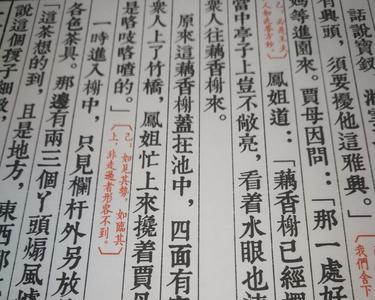 話說寶釵
有興頭，須要擾他這雅興。」
媽等進園來。賈母因問：「那一處好
己
鳳姐道：「藕香榭已經
當中亭子上豈不敞亮，看着水眼也
衆人往藕香榭來。
原來這藕香榭蓋在池中，四面有
衆人上了竹橋，鳳姐忙上來攙着賈母
是咯吱咯喳的。」
己：如見其勢，如臨其
上，非走過者形容不到。
一時進入榭中，只見欄杆外另放
各色茶具。那邊有兩三個丫頭煽風爐
「這茶想的到，且是地方，東西都
說這個孩子細致，
我們舍下